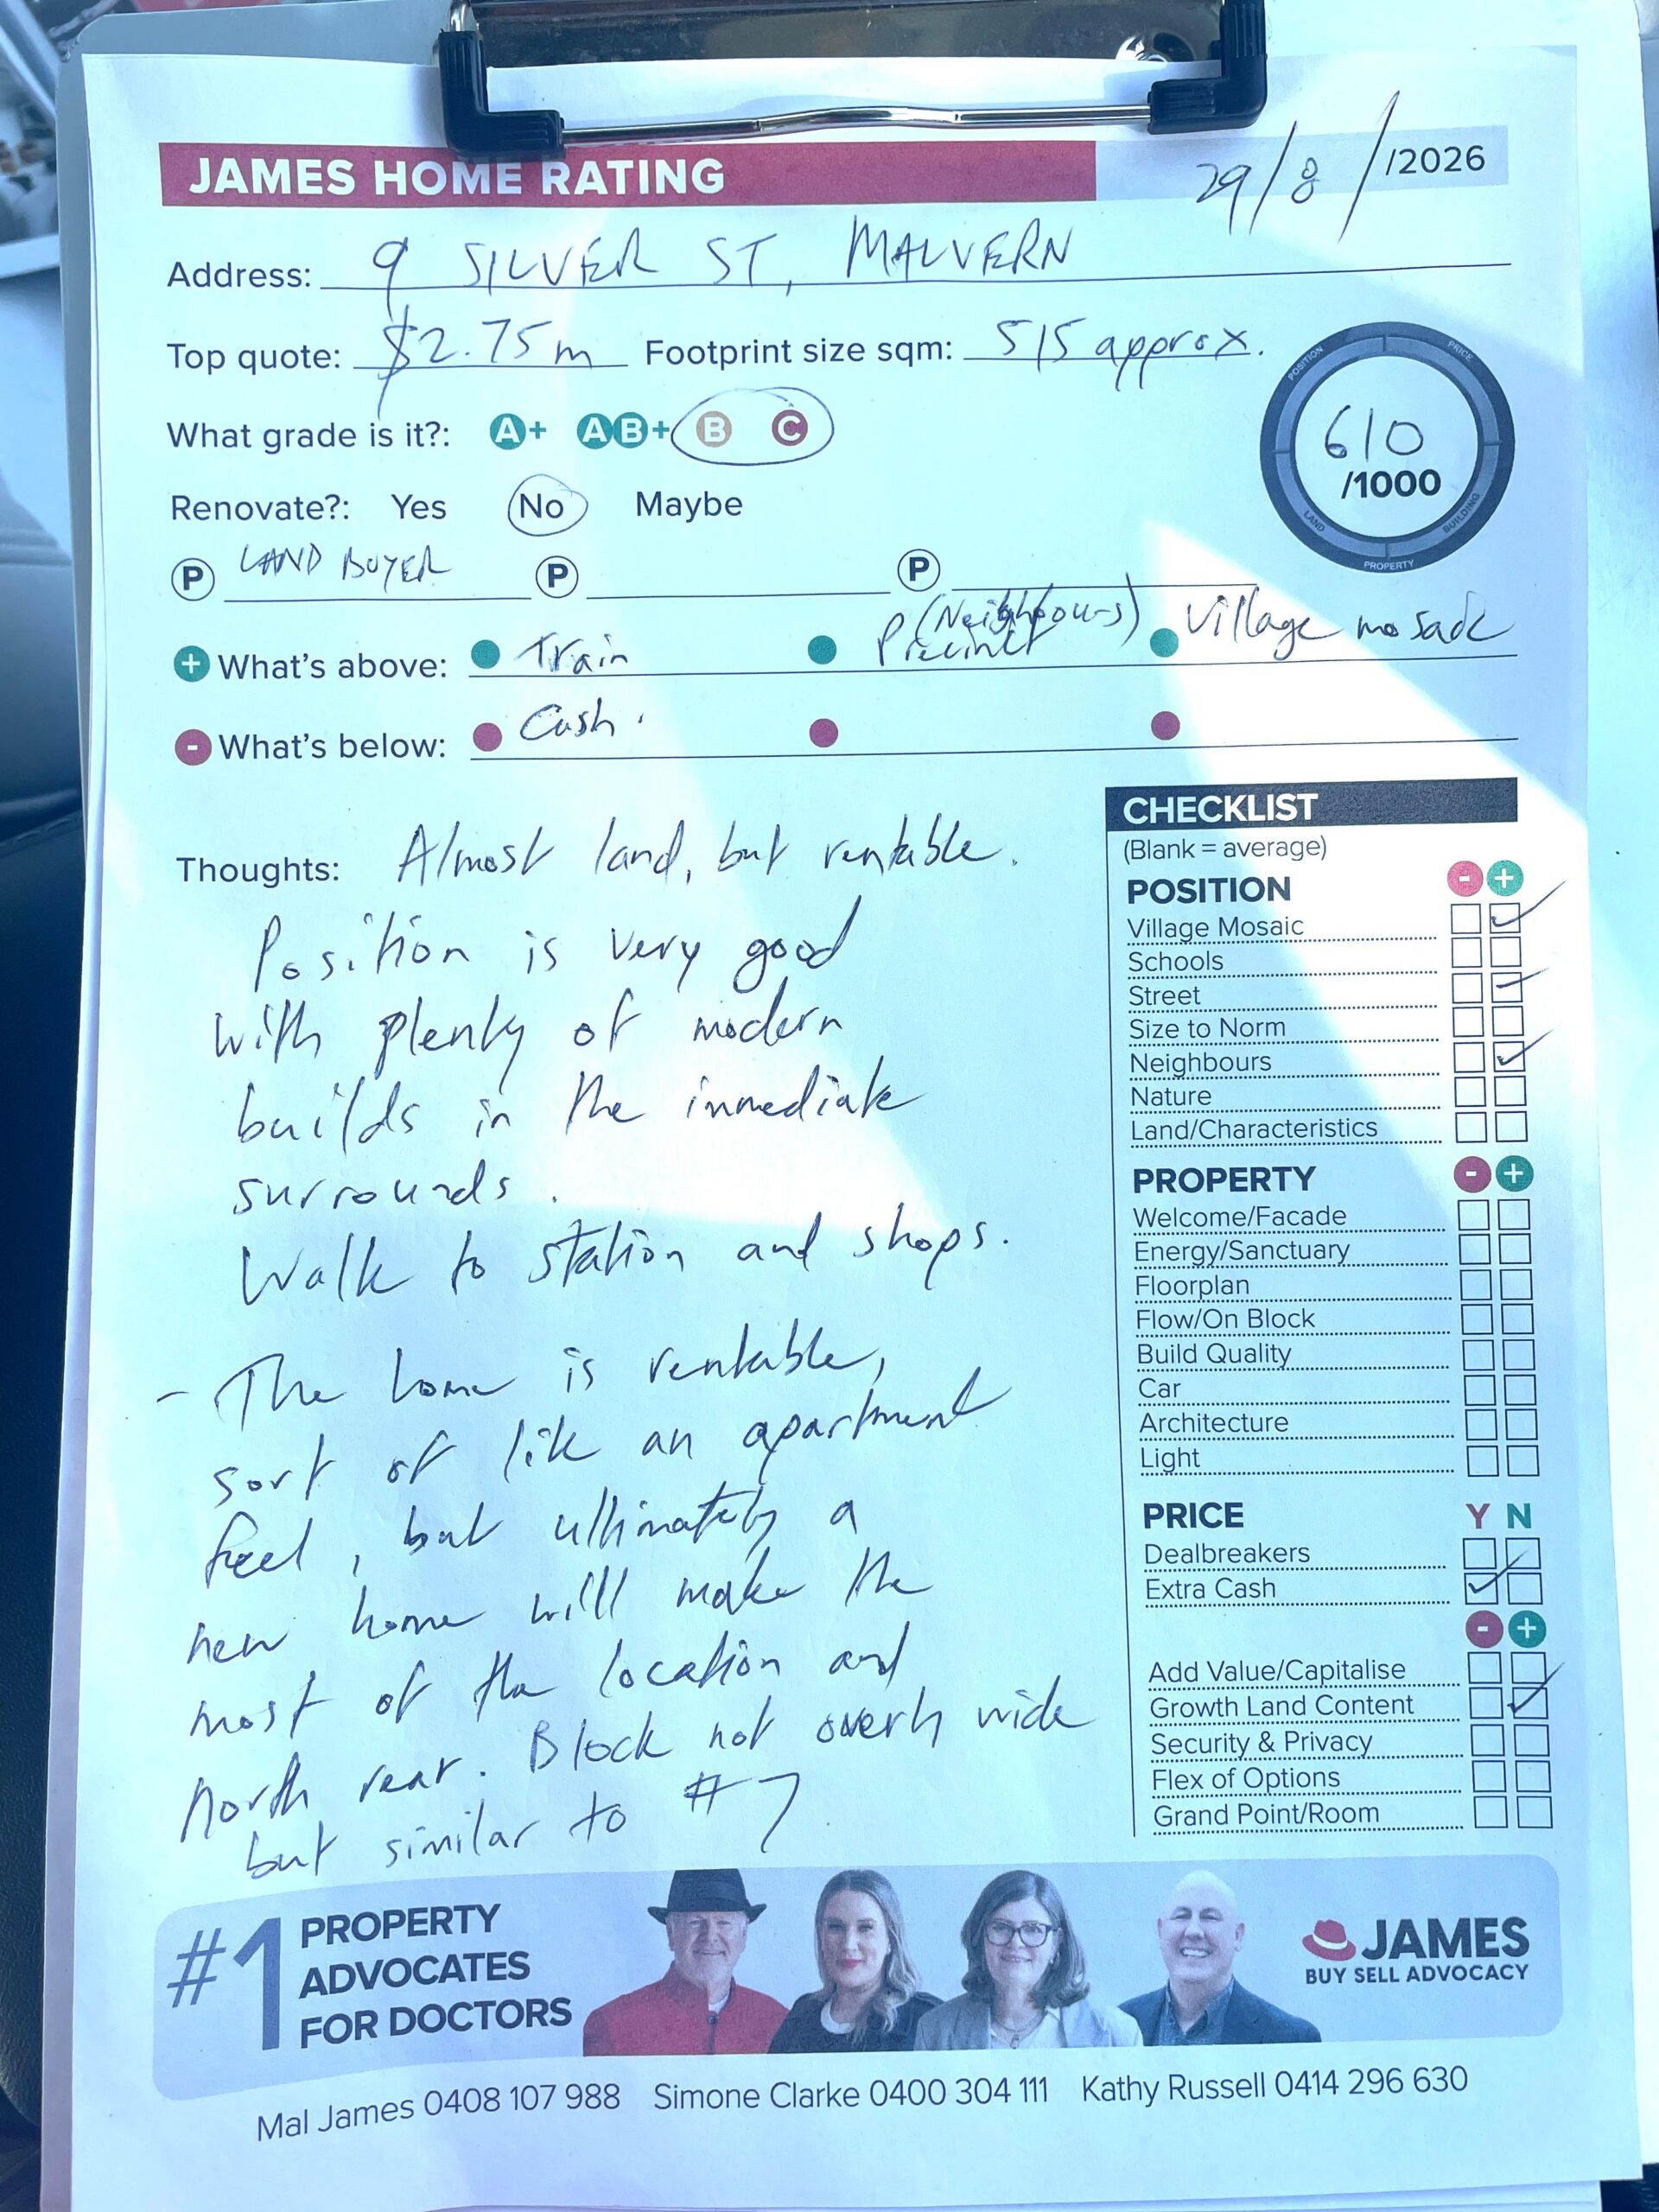 JAMES HOME RATING
29/8/ /2026
Address: 9 SILVER ST, MALVERN
Top quote: $2.75m Footprint size sqm: 515 approx.
What grade is it?: A+ AB+ B C
610
/1000
POSITION PRICE BUILDING PROPERTY LAND
Renovate?: Yes No Maybe
P LAND BUYER P P
(Neighbours)
+ What's above: Train Precinct Village mosaic
- What's below: Cash.
Thoughts: Almost land, but rentable.
Position is very good
with plenty of modern
builds in the immediate
surrounds.
Walk to station and shops.
- The home is rentable,
sort of like an apartment
feel, but ultimately a
new home will make the
most of the location and
north rear. Block not overly wide
but similar to #7
CHECKLIST
(Blank = average)
POSITION - +
Village Mosaic
Schools
Street
Size to Norm
Neighbours
Nature
Land/Characteristics
PROPERTY - +
Welcome/Facade
Energy/Sanctuary
Floorplan
Flow/On Block
Build Quality
Car
Architecture
Light
PRICE Y N
Dealbreakers
Extra Cash
- +
Add Value/Capitalise
Growth Land Content
Security & Privacy
Flex of Options
Grand Point/Room
#1 PROPERTY
ADVOCATES
FOR DOCTORS
JAMES
BUY SELL ADVOCACY
Mal James 0408 107 988 Simone Clarke 0400 304 111 Kathy Russell 0414 296 630